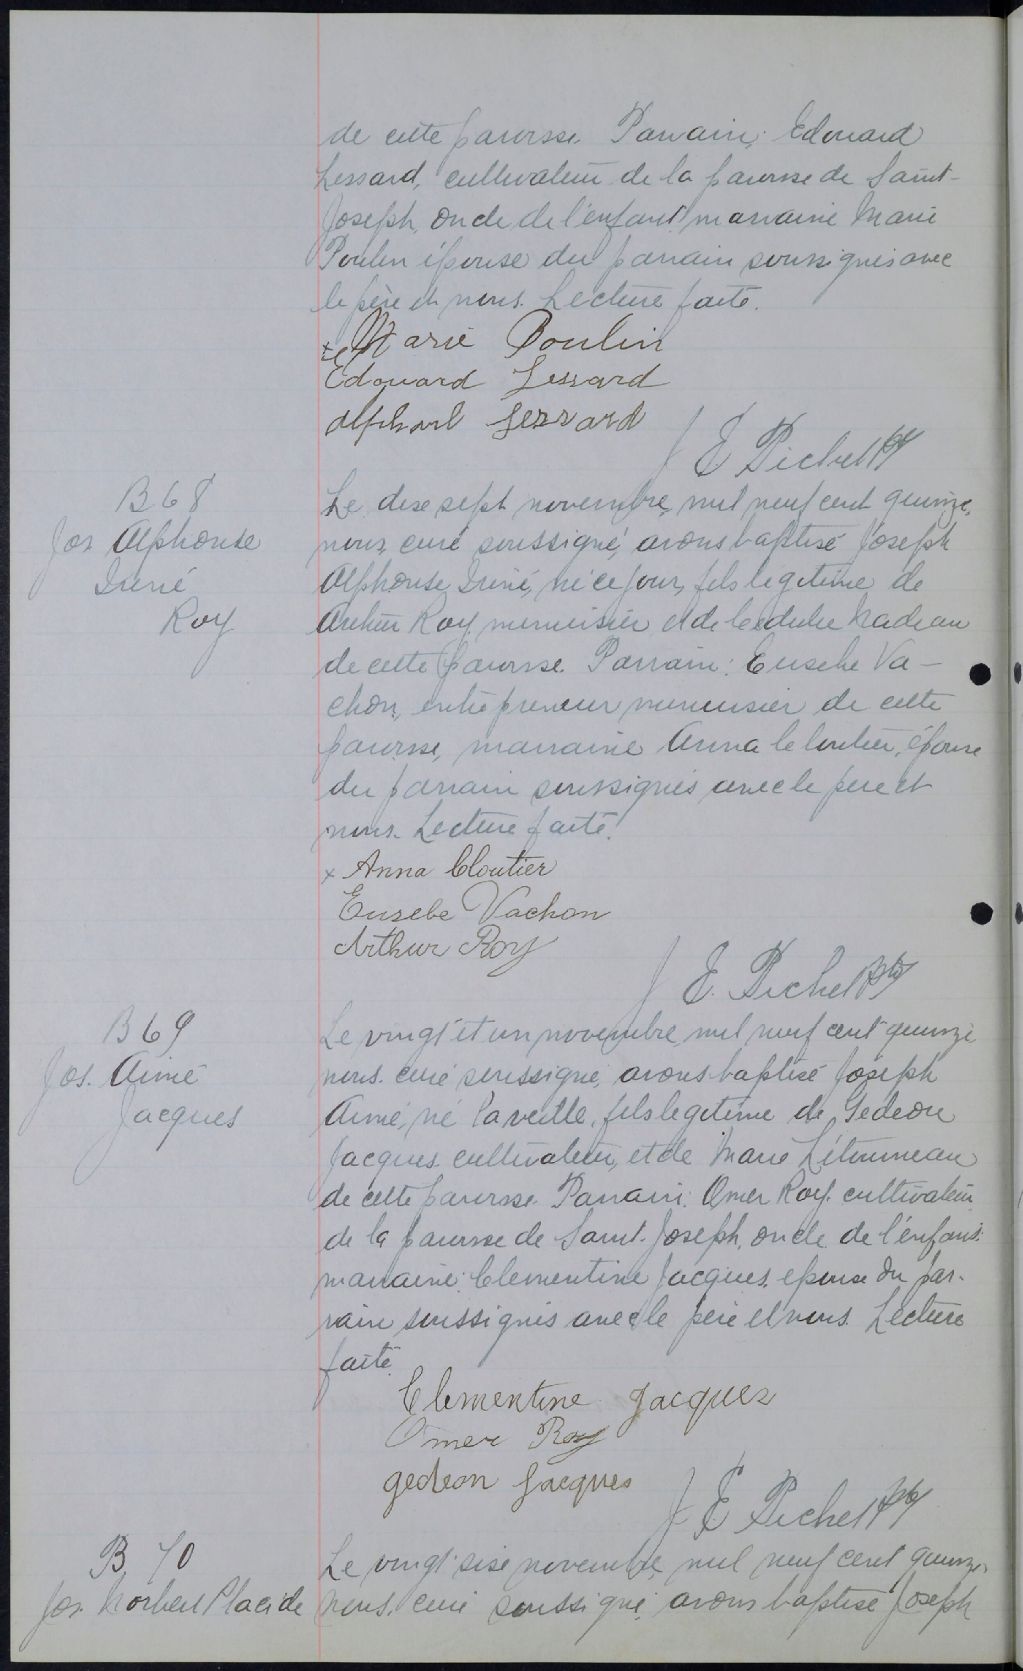 de cette paroisse. Parrain: Edouard
Lessard, cultivateur de la paroisse de Saint-
Joseph, oncle de l'enfant, marraine Marie
Poulin épouse du parrain soussignés avec
le père et nous. Lecture faite.
x Marie Poulin
Edouard Lessard
Lessard
J E Pichet ptr
B 68
Jos Alphonse
Iréné
Roy
Le dix sept novembre, mil neuf cent quinze,
nous, curé soussigné, avons baptisé Joseph
Alphonse Iréné, né ce jour, fils légitime de
Arthur Roy, menuisier et de Nadeau
de cette paroisse. Parrain: Eusebe Va-
chon, entrepreneur menuisier, de cette
paroisse, marraine Anna Cloutier, épouse
du parrain soussignés avec le père et
nous. Lecture faite.
x Anna Cloutier
Eusebe Vachon
Arthur Roy
J E. Pichet ptr
B 69
Jos. Aimé
Jacques
Le vingt et un novembre, mil neuf cent quinze
nous. curé soussigné, avons baptisé Joseph
Aimé, né la veille, fils legitime de Gedeon
Jacques. cultivateur, et de Marie Létourneau
de cette paroisse. Parrain: Omer Roy. cultivateur
de la paroisse de Saint-Joseph, oncle de l'enfant.
marraine: Clementine Jacques. epouse du par-
rain soussignés avec le père et nous. Lecture
faite.
Clementine Jacques
Omer Roy
gedeon Jacques
J E Pichet ptr
B. 70
Jos. Norbert Placide
Le vingt six novembre, mil neuf cent quinze,
nous, curé soussigné, avons baptisé Joseph